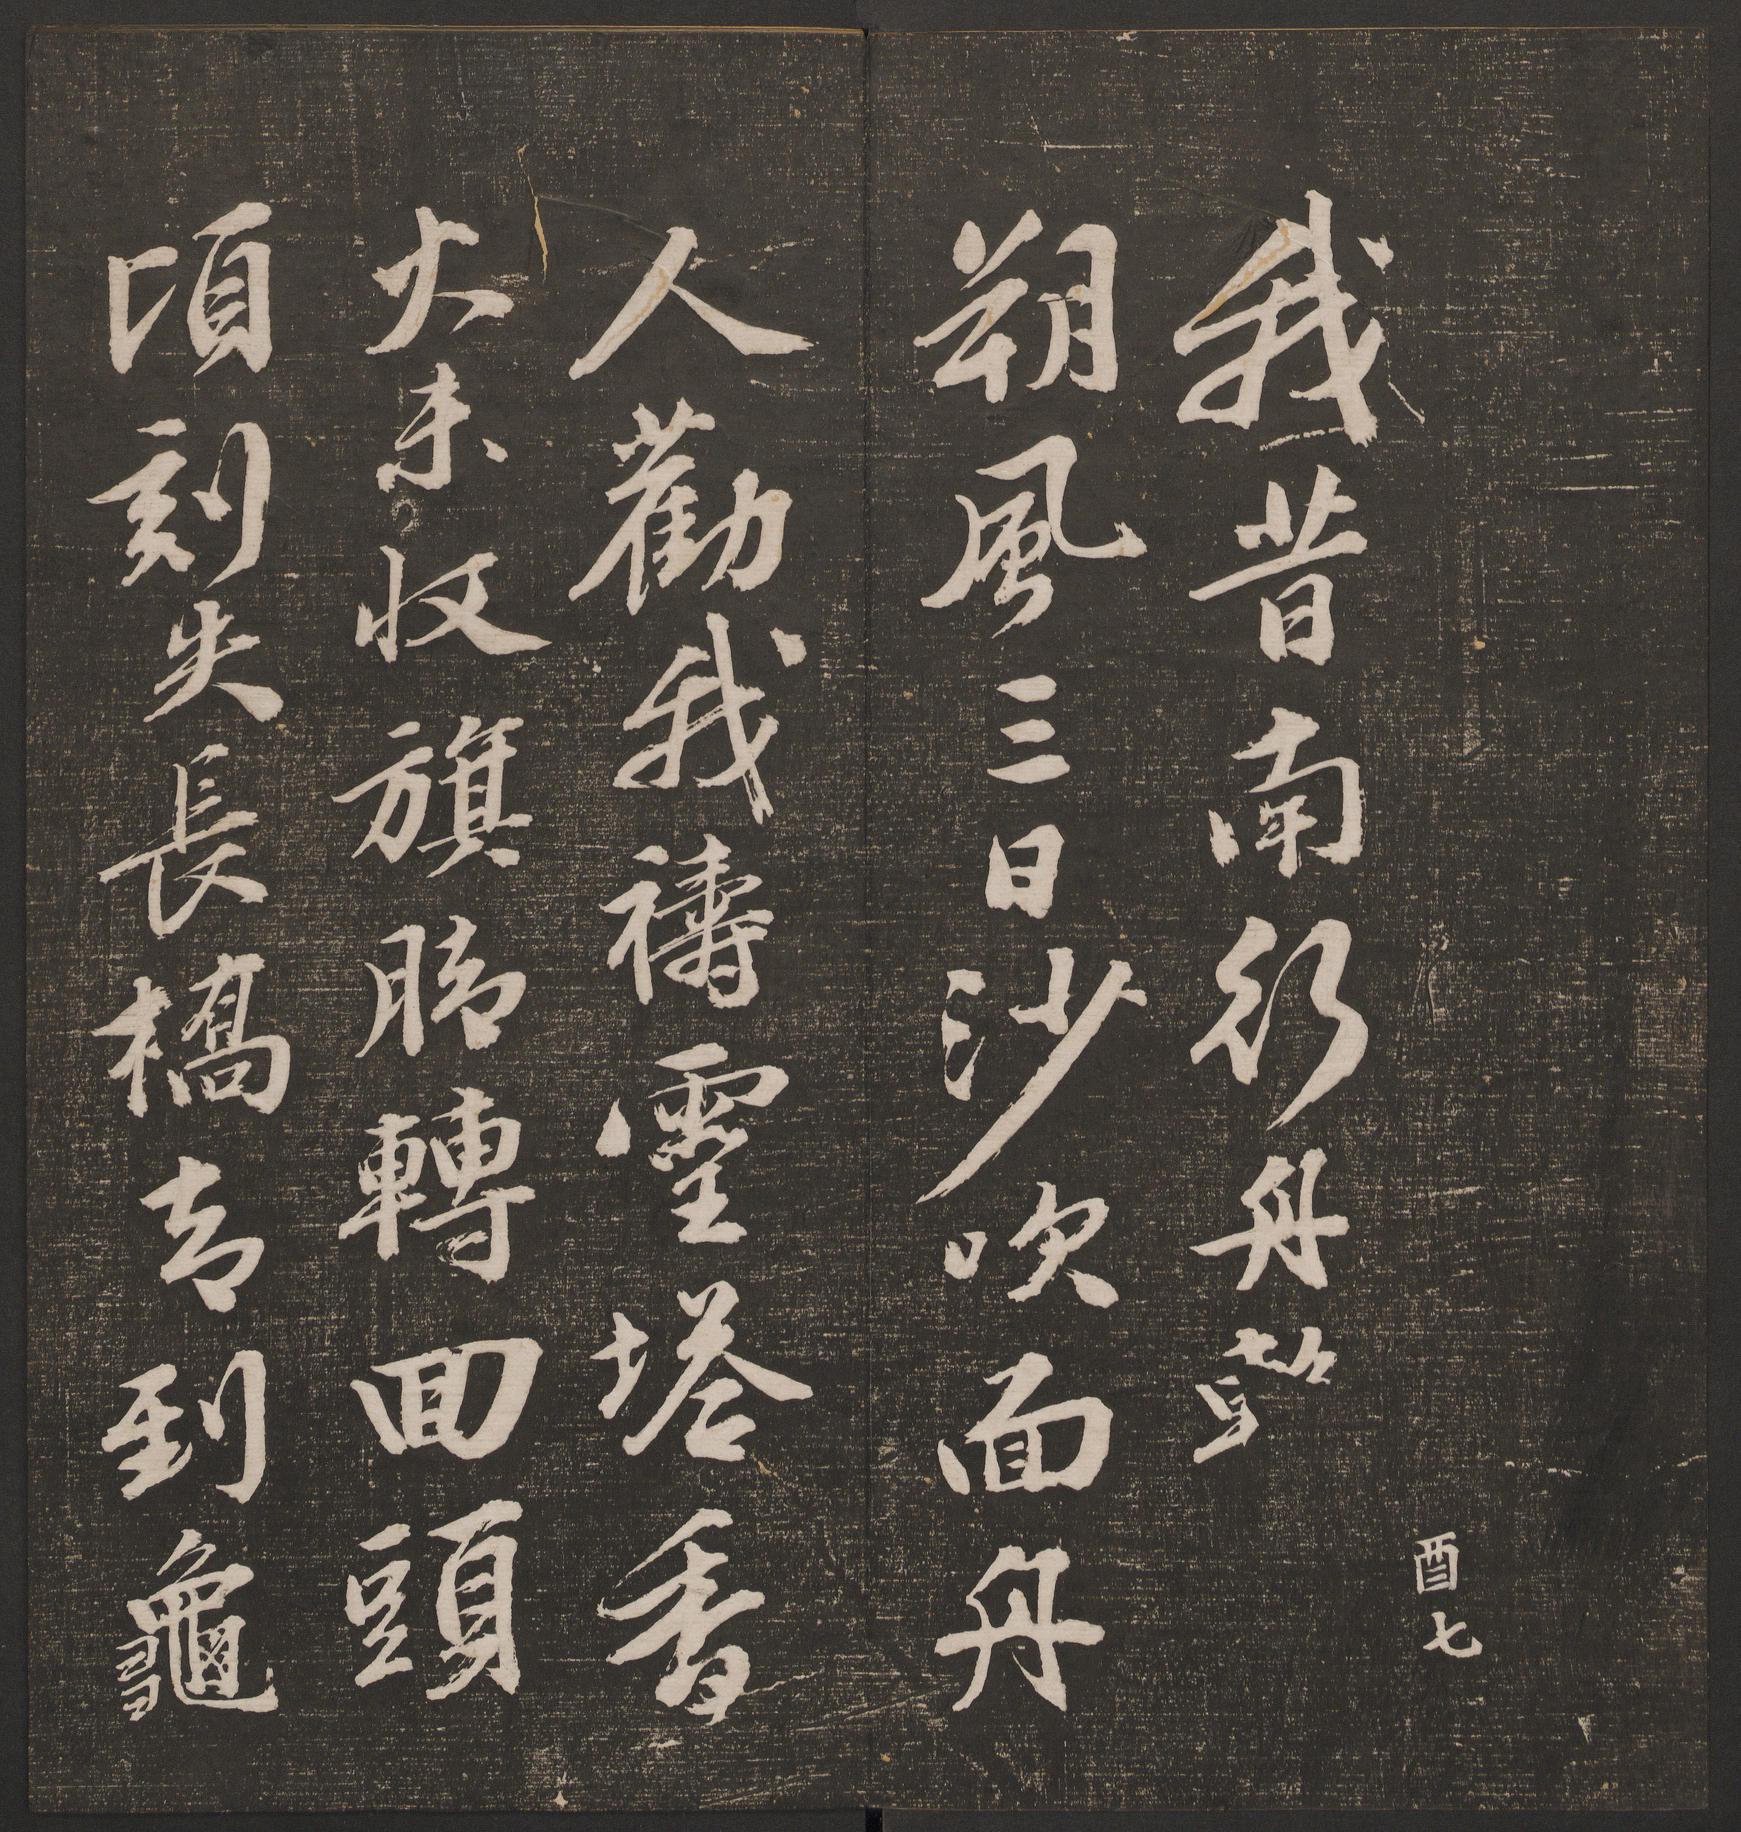 酉七
我昔南行舟
朔風三日沙吹面舟
人勸我禱靈塔香
火未收旗脚轉回頭
頃刻失長橋去到龜